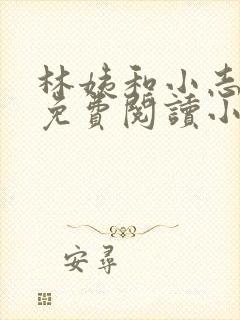 林姨和小志
免費閱讀小
安尋